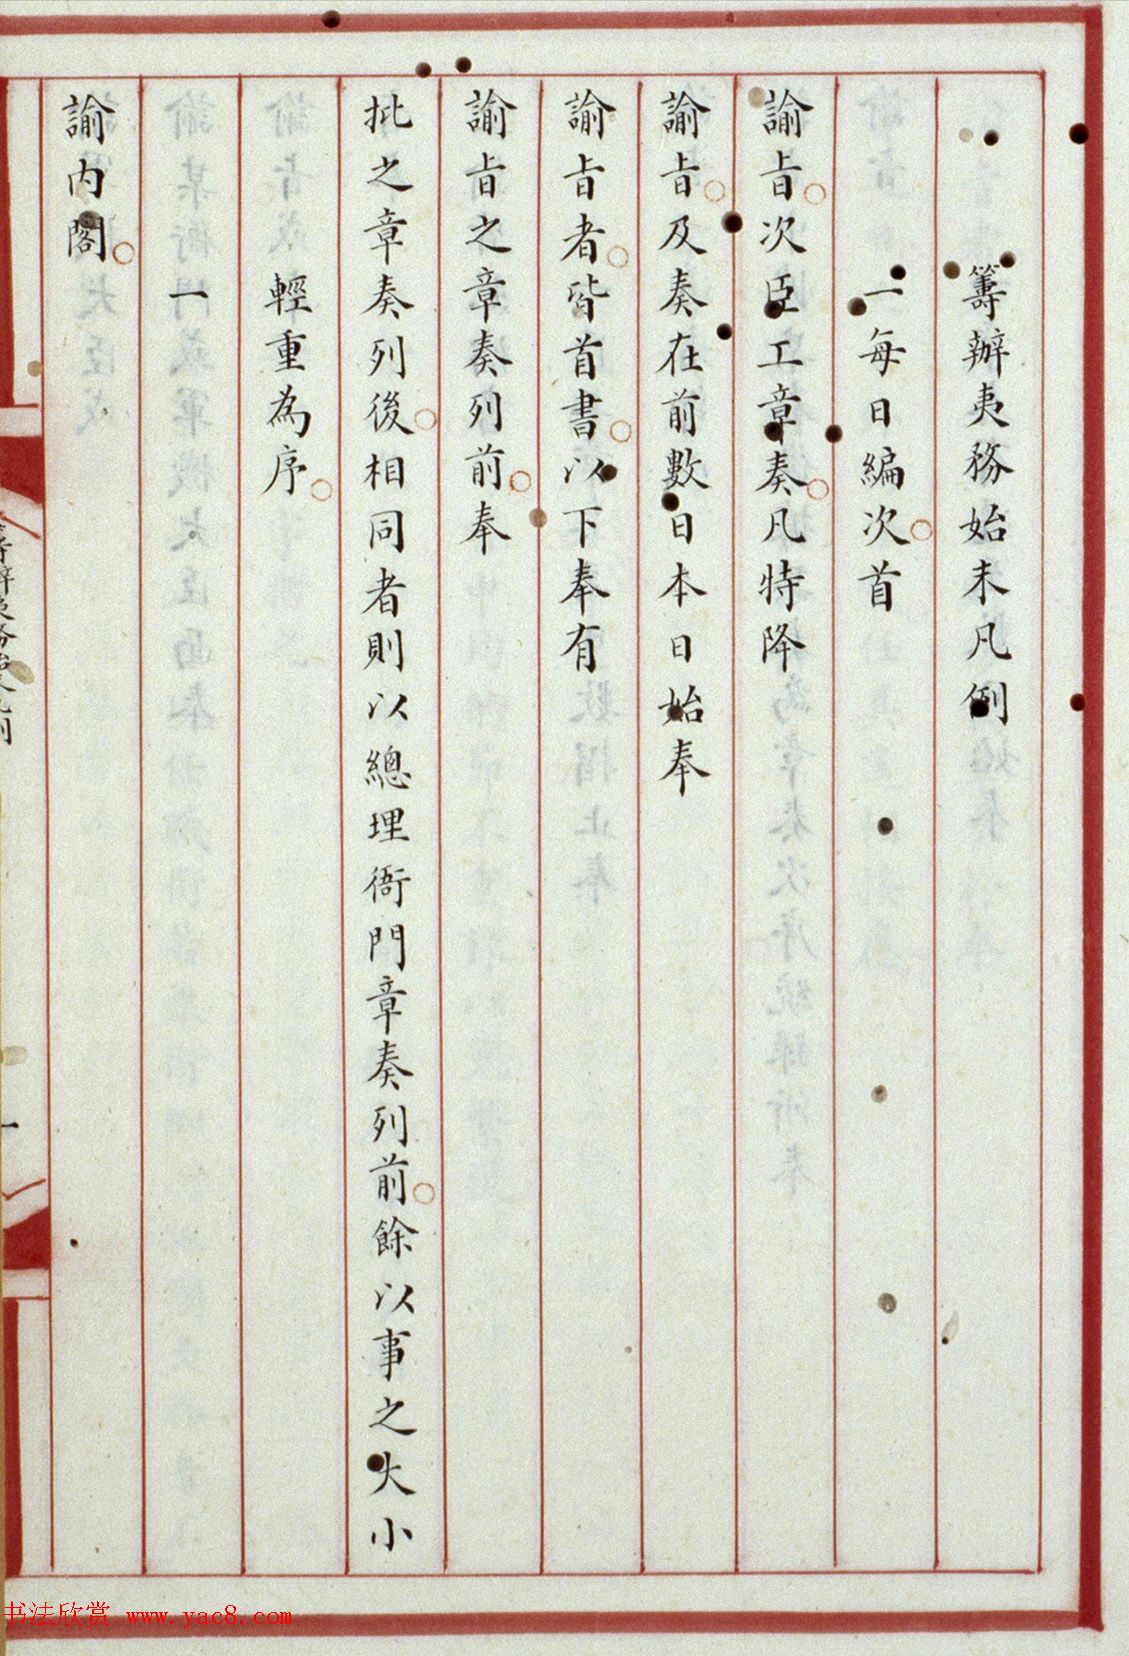 籌辦夷務始末凡例
一每日編次首
諭旨次臣工章奏凡特降
諭旨及奏在前數日本日始奉
諭旨者皆首書以下奉有
諭旨之章奏列前奉
批之章奏列後相同者則以總理衙門章奏列前餘以事之大小
輕重為序
一
諭內閣
書法欣赏 www.yac8.com